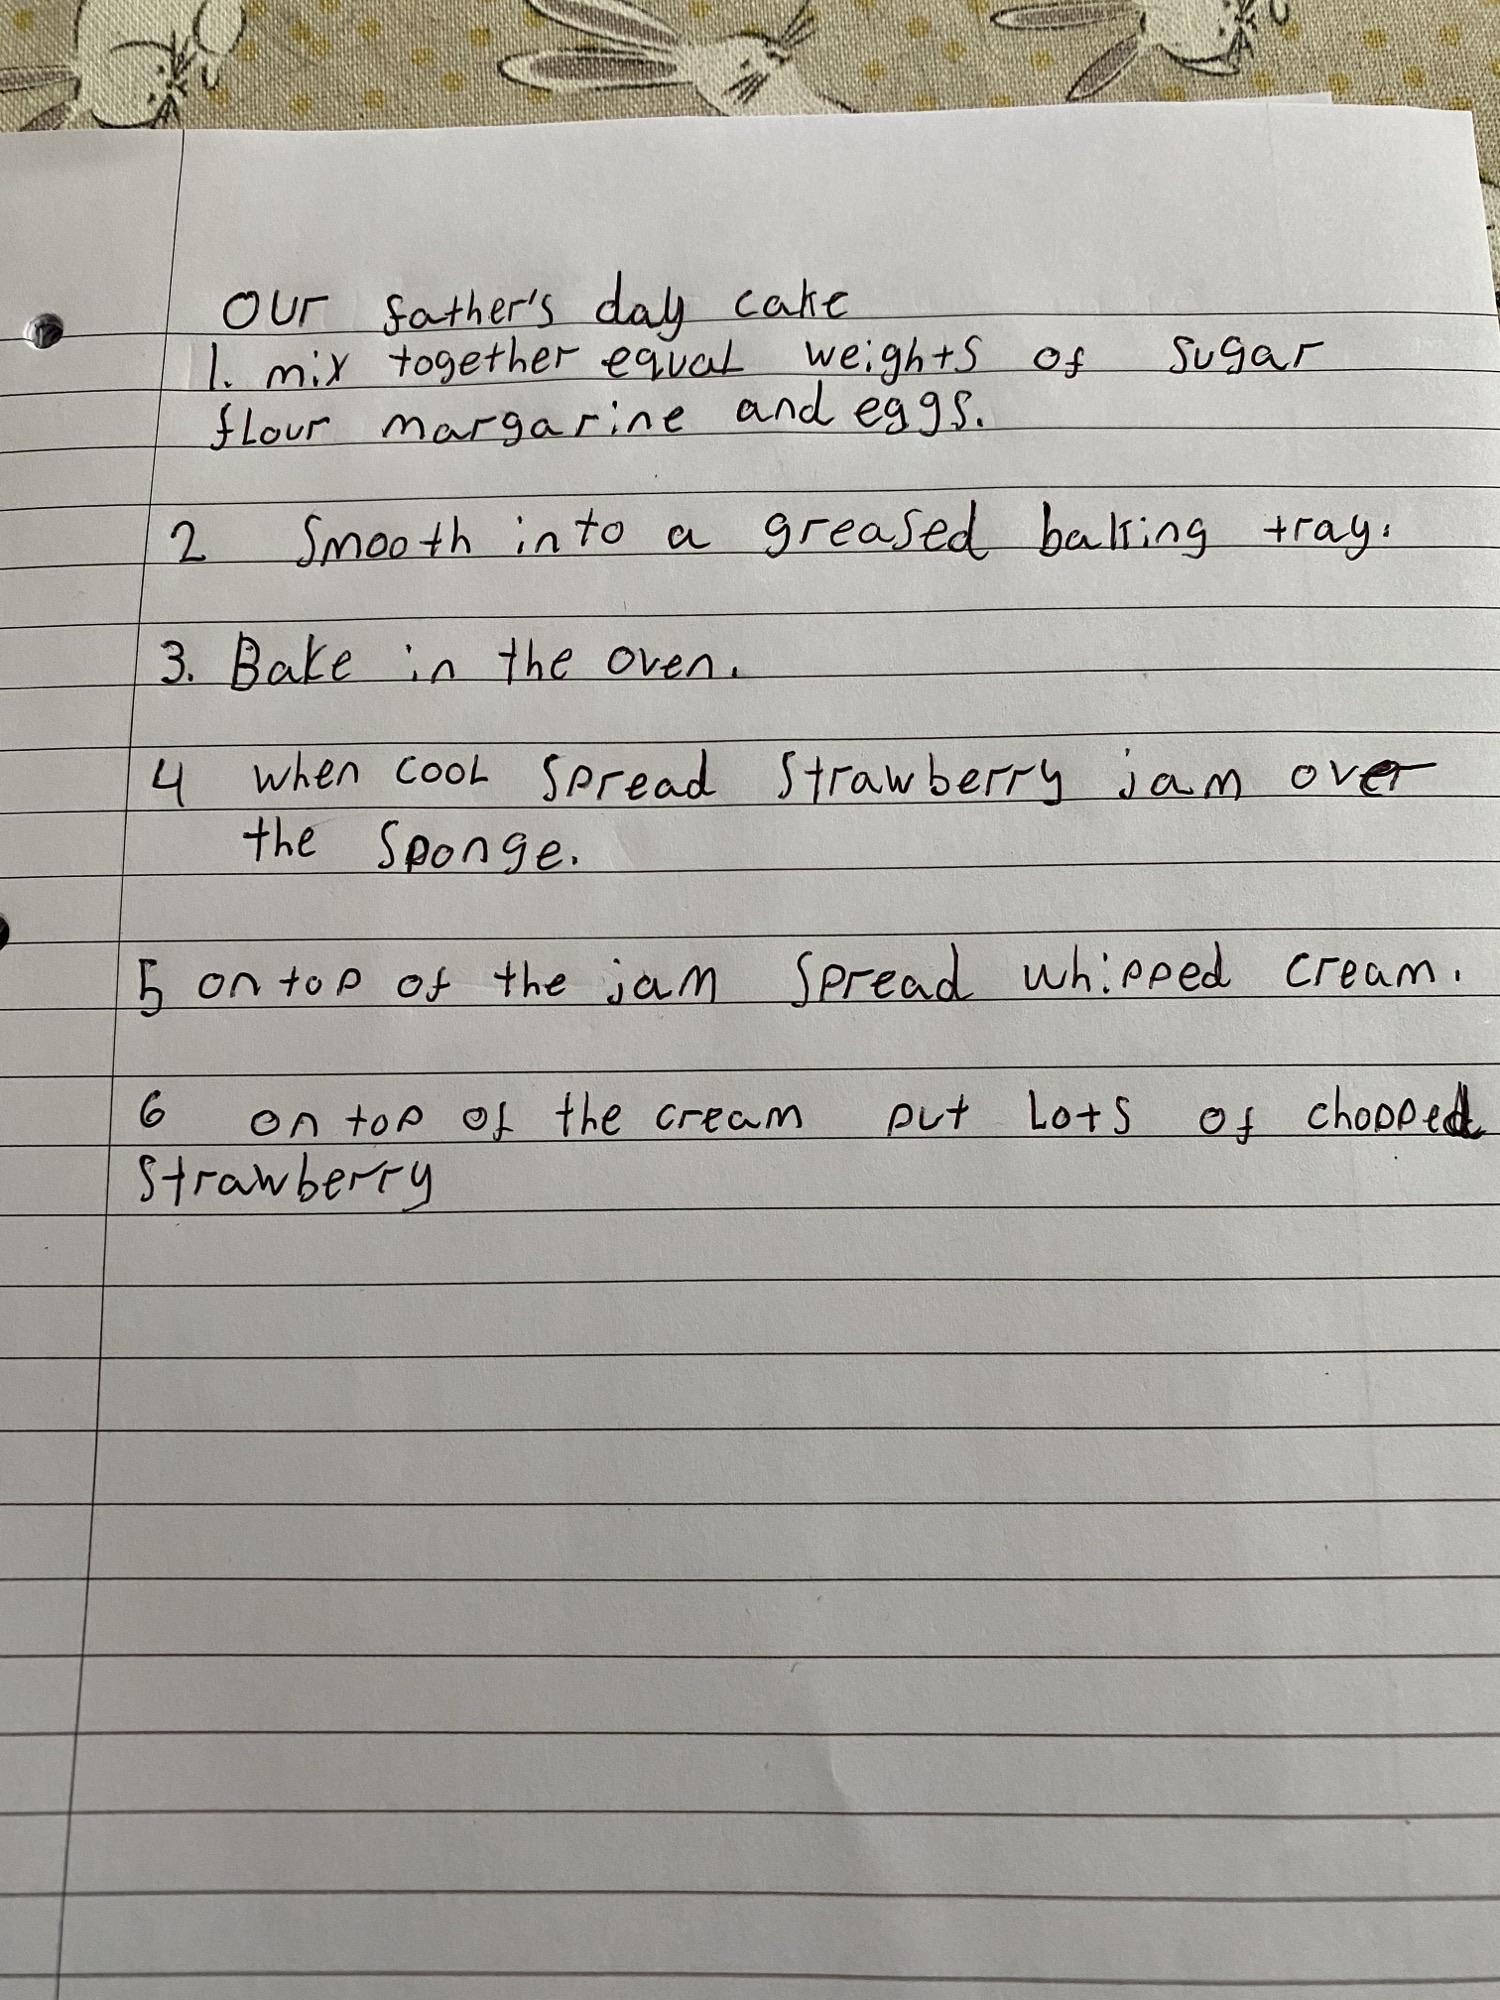 Our father's day cake
1. mix together equal weights of sugar
flour margarine and eggs.
2 Smooth into a greased baking tray.
3. Bake in the oven.
4 when cool spread strawberry jam over
the sponge.
5 on top of the jam spread whipped cream.
6 on top of the cream put lots of chopped
strawberry